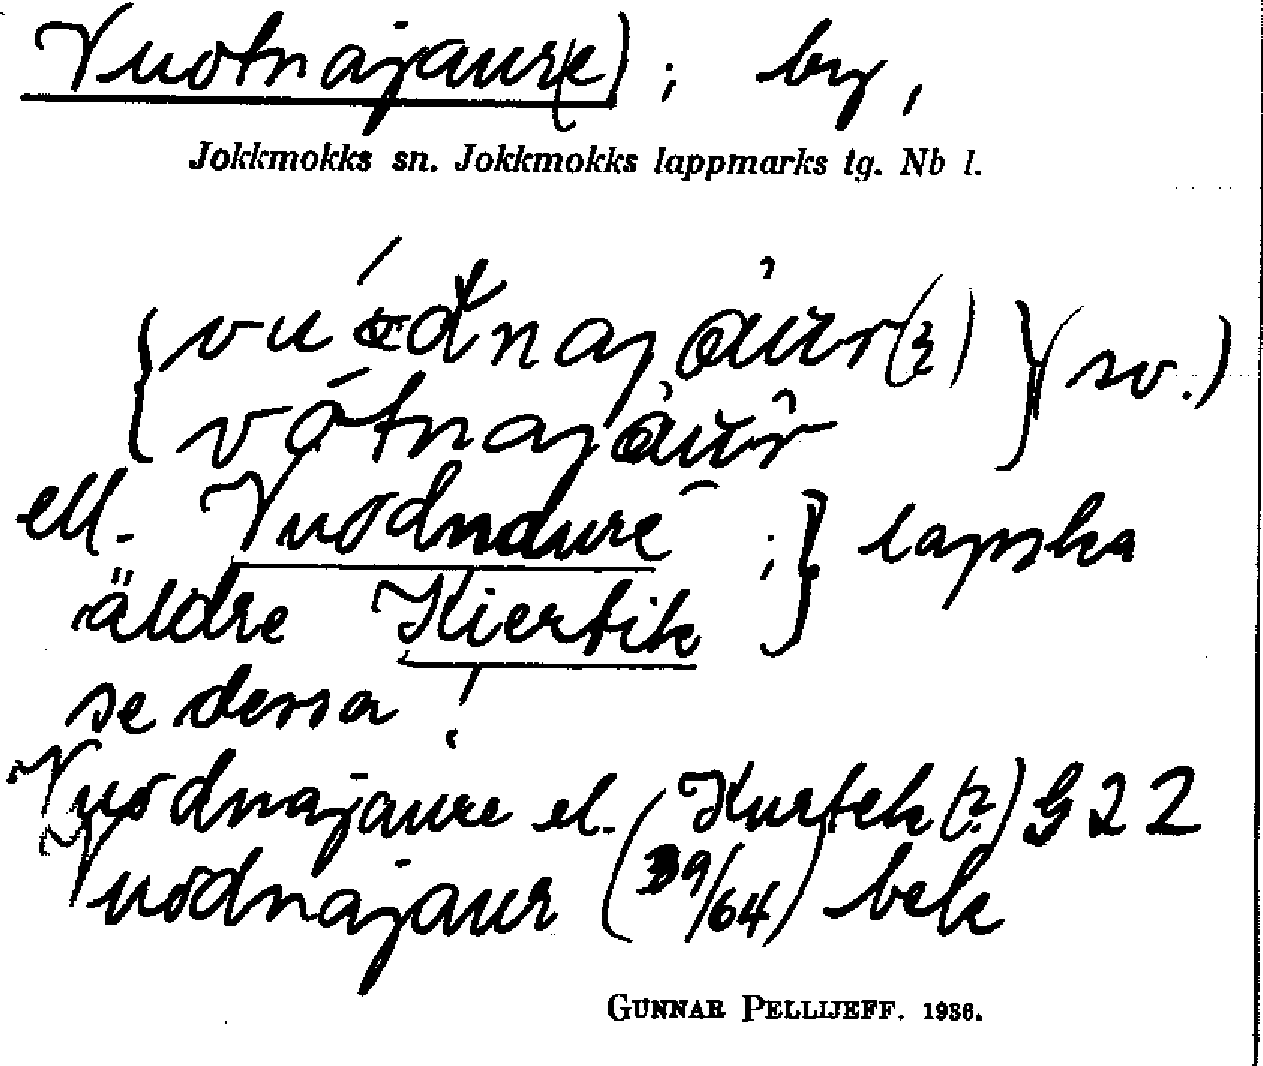 Vuotnajaur(e); by,
Jokkmokks sn. Jokkmokks lappmarks tg. Nb l.
(sv.)
ell. Vuodnaure; } lapska
äldre Kiertik
se dessa!
Vuodnajaure el. Kurtek (?) G 22
Vuodnajaur (39/64) bek
GUNNAR PELLIJEFF. 1936.